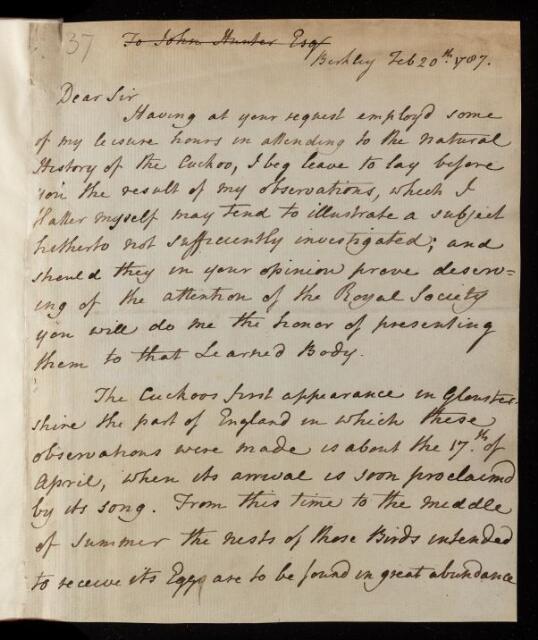 37
To John Hunter Esqr
Berkley Feb 20th 1787.
Dear Sir
Having at your request employ'd some
of my leisure hours in attending to the natural
History of the Cuckoo, I beg leave to lay before
you the result of my observations, which I
flatter myself may tend to illustrate a subject
hitherto not sufficiently investigated; and
should they in your opinion prove deserv=
ing of the attention of the Royal Society
you will do me the honor of presenting
them to that Learned Body.
The Cuckoos first appearance in Glouster-
shire the part of England in which these
observations were made is about the 17.th of
April, when its arrival is soon proclaim'd
by its song. From this time to the middle
of Summer the nests of those Birds intended
to receive its Eggs are to be found in great abundance